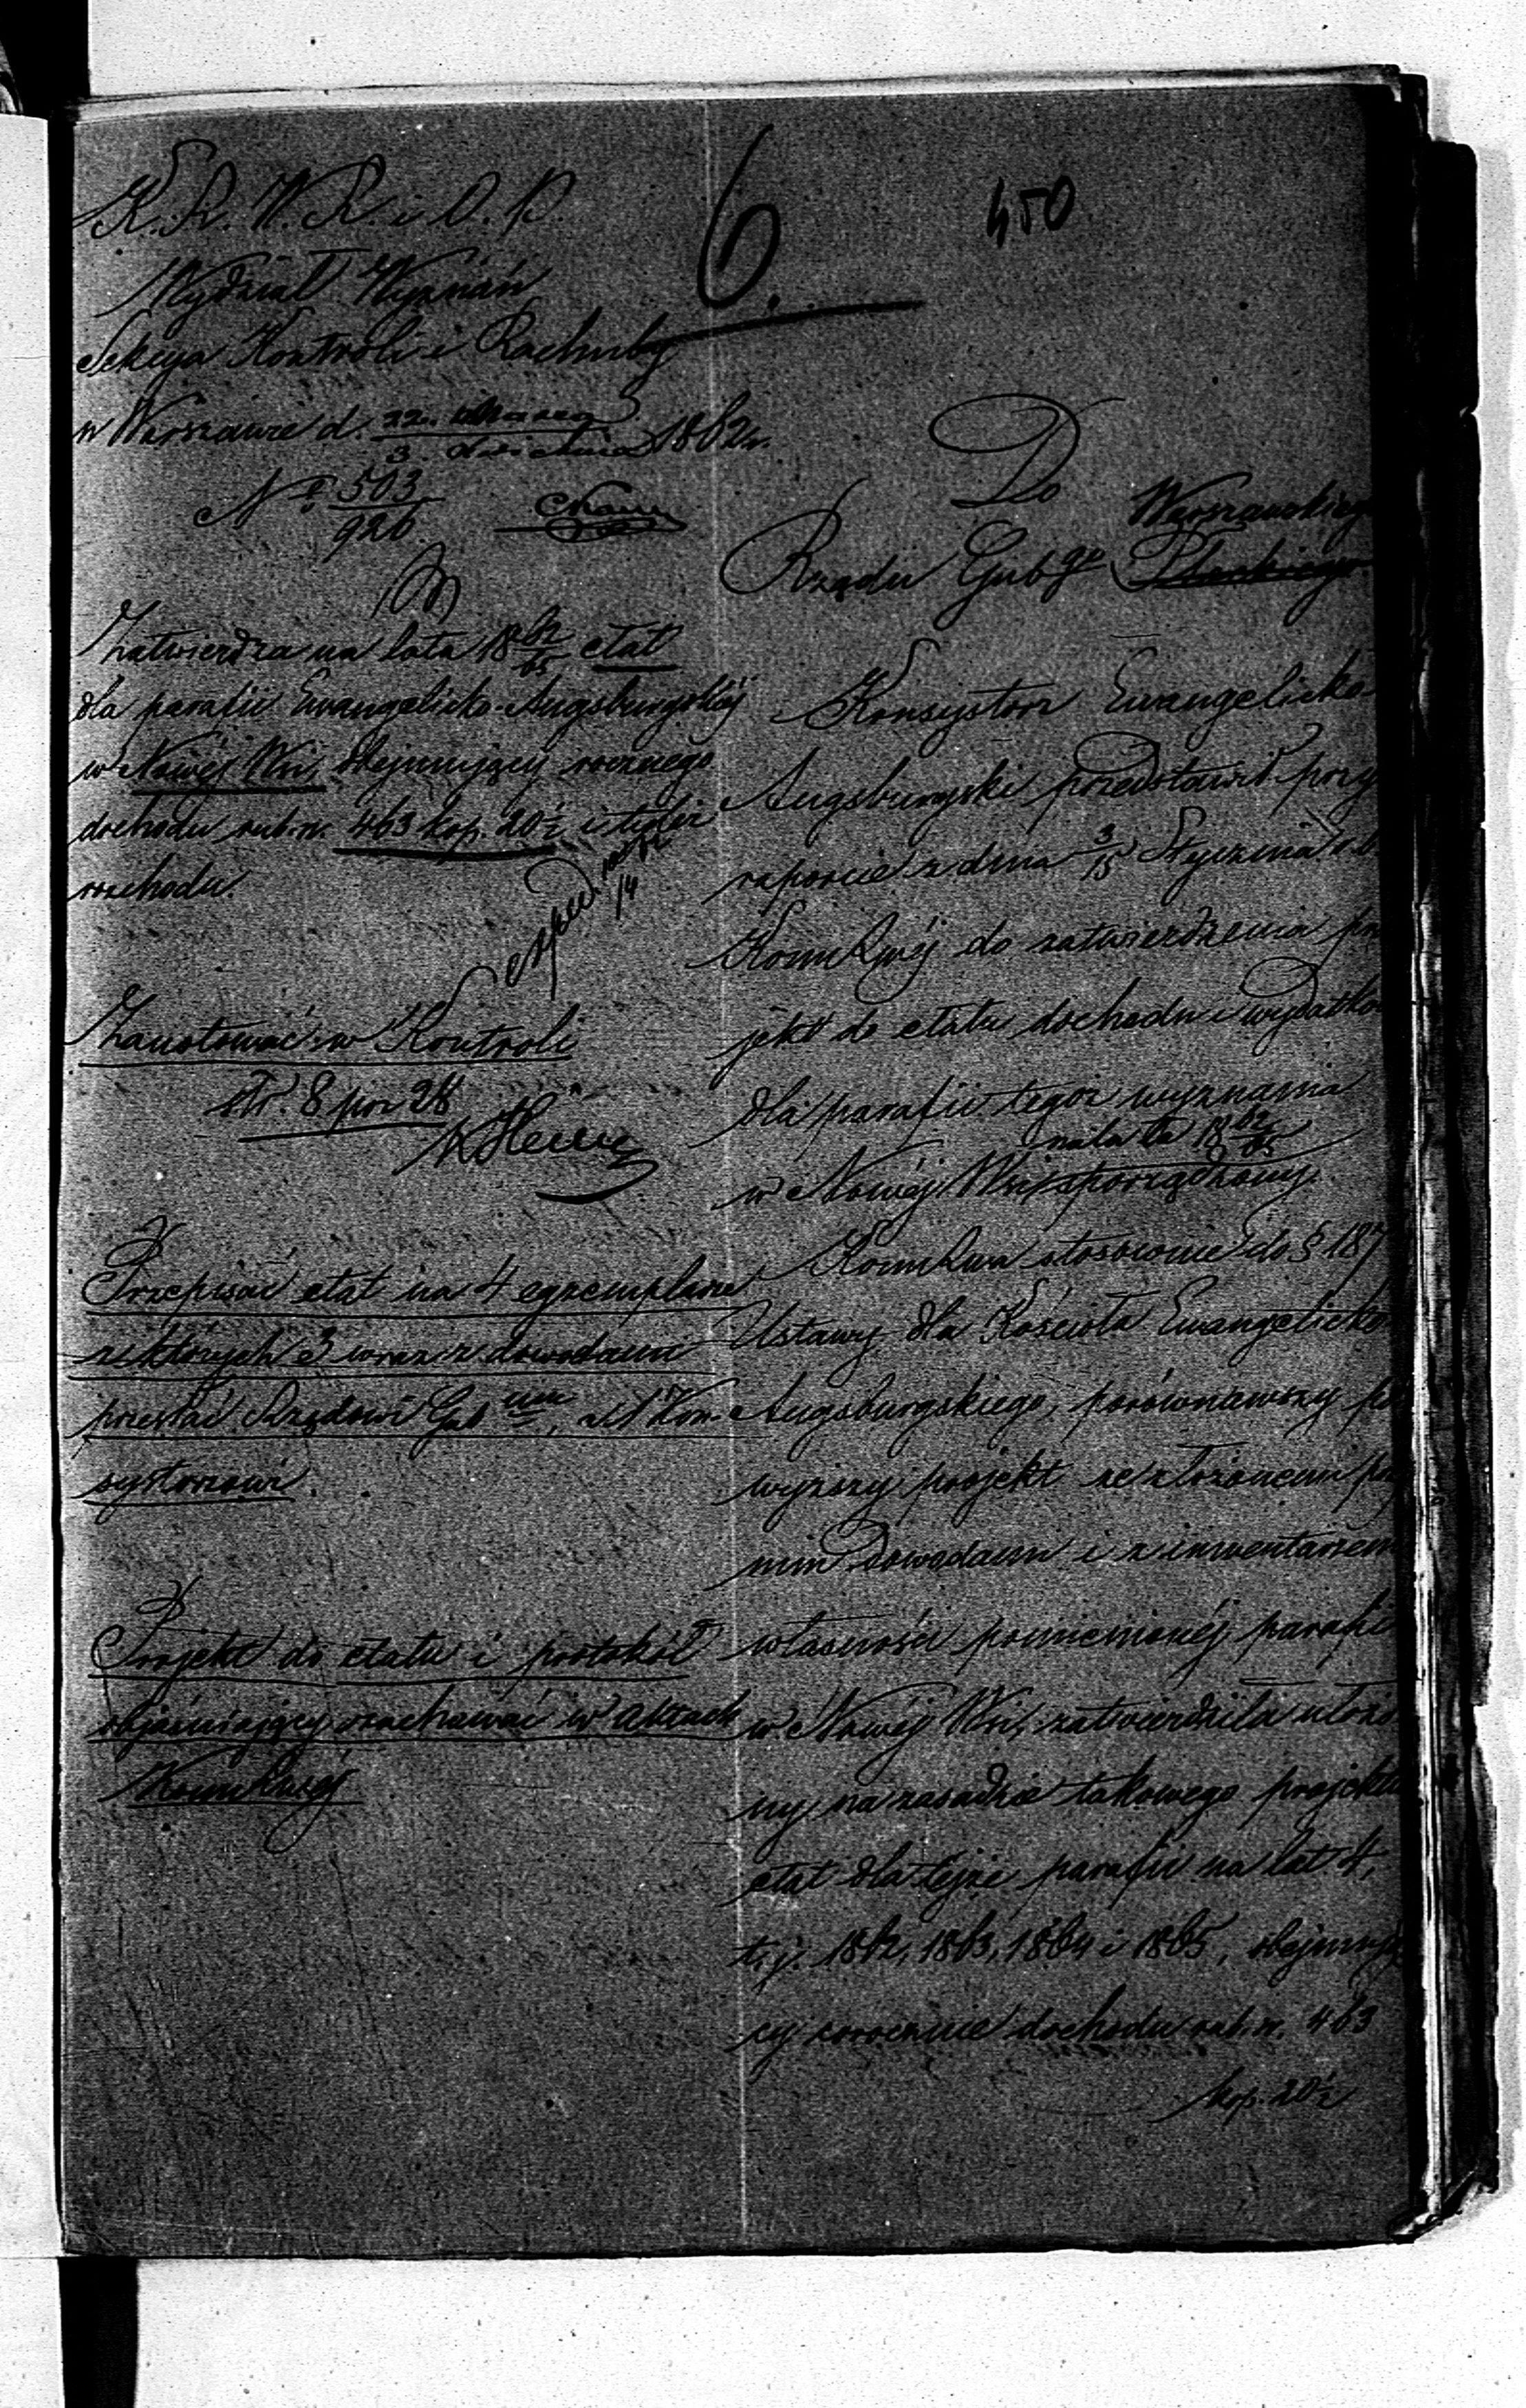 450
6.
K. R. W. R. i O. P.
Wydział Wyznań
Sekcya Kontroli i Rachuby
w Warszawie d. 22. Marca / 3. Kwietnia 1862 r.
No 503 / 926
Zatwierdza na lata 18 62/65 etat
dla parafii Ewangelicko-Augsburgskiéj
w Nowéj Wsi, obejmujący rocznego
dochodu rub. sr. 463 kop. 20½ i tyleż
rozchodu.
Zanotować w Kontroli
str. 8 poz 28
Przepisać etat na 4 egzemplarze
z których 3 wraz z dowodami
przesłać Rządowi Gub mu, a 1 Kon-
systorzowi.
Projekt do etatu i protokół
objaśniający zachować w aktach
Kom Rwéj
Do
Warszawskiego
Rządu Gubgo Płockiego
Konsystorz Ewangelicko
Augsburgski przedstawił przy
raporcie z dnia 3/15 Stycznia r. b.
Kom Rwéj do zatwierdzenia pro
jekt do etatu dochodu i wydatków
dla parafii tegoż wyznania
na lata 18 62/65
w Nowéj Wsi sporządzony.
Kom Rwa stosownie do § 187
Ustawy dla Kościoła Ewangelicko
Augsburgskiego, porównawszy po
wyższy projekt ze złożonemi przy
nim dowodami i z inwentarzem
własności pomienionéj parafii
w Nowéj Wsi, zatwierdziła ułożo
ny na zasadzie takowego projektu
etat dla tejże parafii na lat 4,
t. j. 1862, 1863, 1864 i 1865, obejmują
cy corocznie dochodu rub. sr. 463
kop. 20½